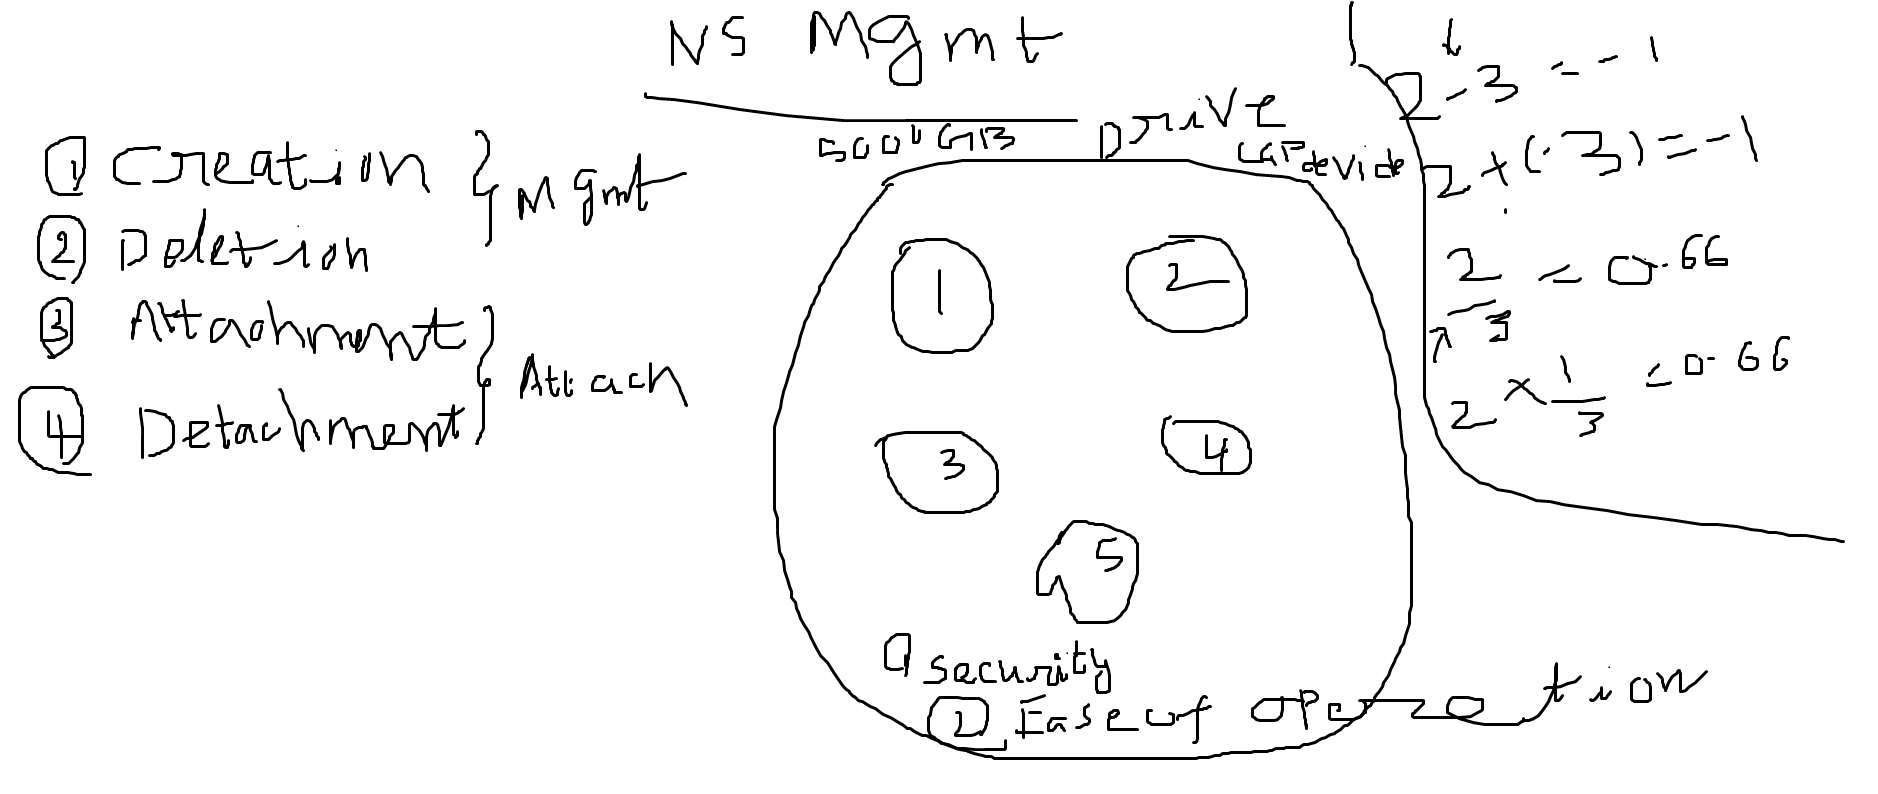 NS Mgmt
① Creation } Mgmt
② Deletion
③ Attachment } Attach
④ Detachment
500 GB Drive
CAP devide
1 2
3 4
5
security
② Ease of operation
2 - 3 = -1
2 + (-3) = -1
2/3 = 0.66
2 × 1/3 = 0.66